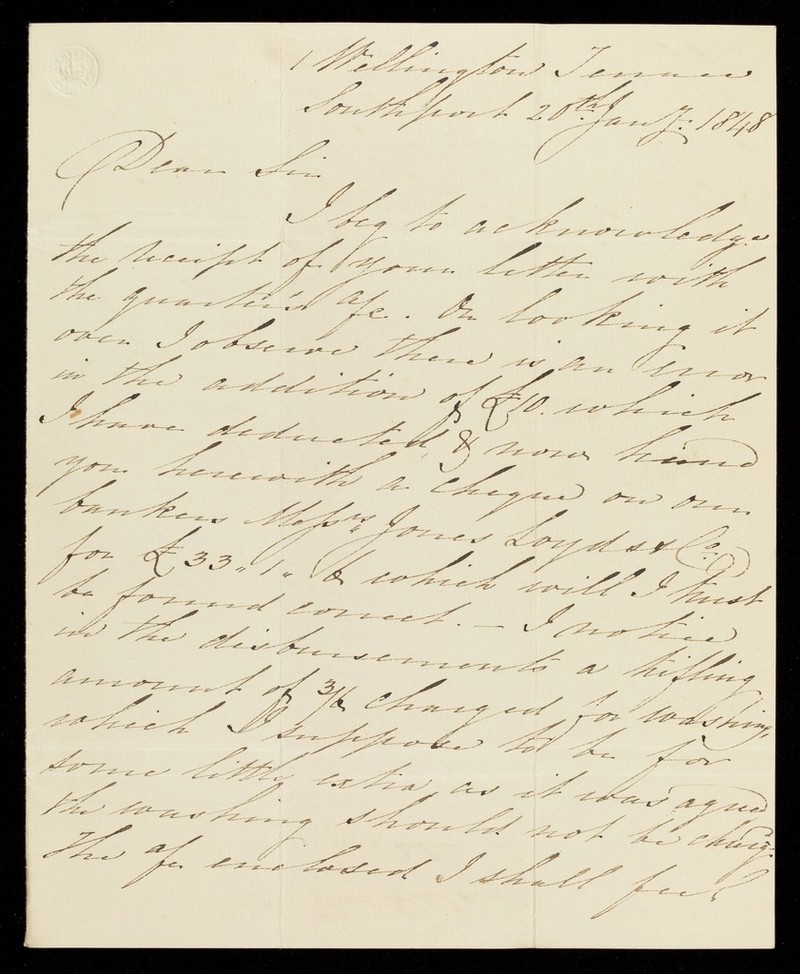 1 Wellington Terrace
Southport 20th Jany. 1848
Dear Sir
I beg to acknowledge
the receipt of your letter with
the quarter's a/c. On looking it
over I observe there is an error
in the addition of £10. which
I have deducted, & now hand
you herewith a cheque on our
bankers Messrs Jones Loyds & Co.
for £33 " 1 " 6 which will I trust
be found correct. — I notice
in the disbursements a trifling
amount of 3/6 charged for washing,
which I suppose to be for
some little extra as it was agreed
the washing should not be charg
The a/c enclosed I shall feel